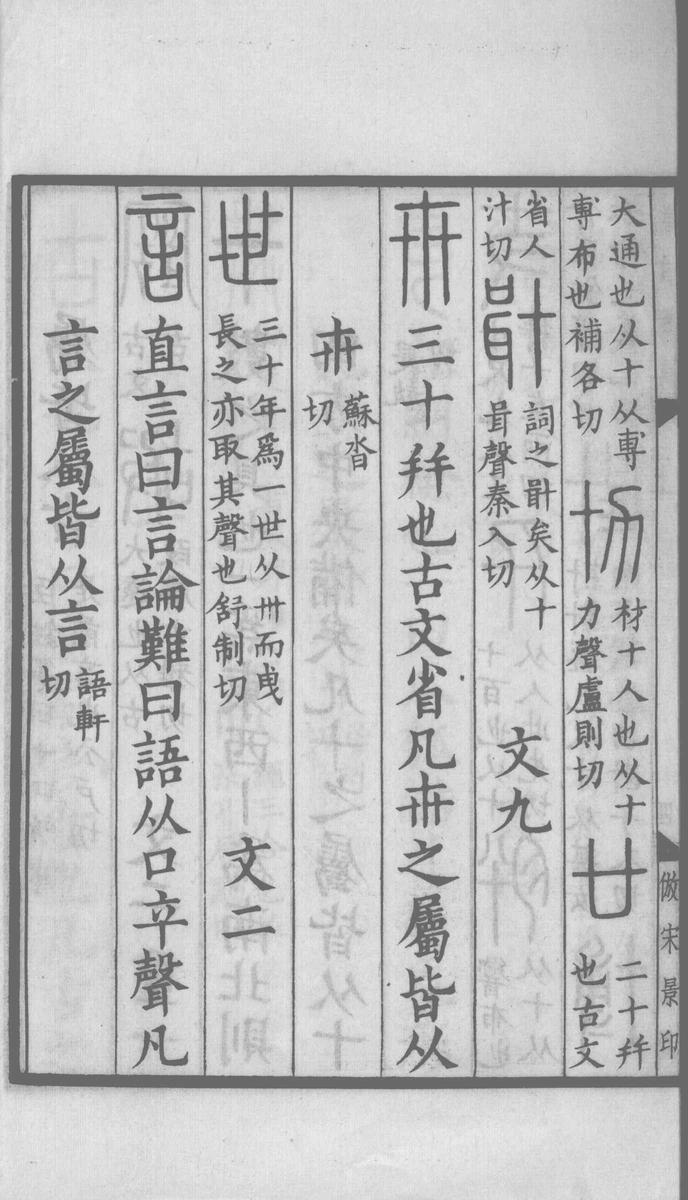 大通也从十从尃
尃布也補各切
材十人也从十
力聲盧則切
廿
二十幷
也古文
省人
汁切
詞之𠦫矣从十
咠聲秦入切
文九
卅三十幷也古文省凡卅之屬皆从
卅蘇沓
切
世
三十年爲一世从卅而曳
長之亦取其聲也舒制切
文二
言直言曰言論難曰語从口䇂聲凡
言之屬皆从言語軒
切
倣宋景印